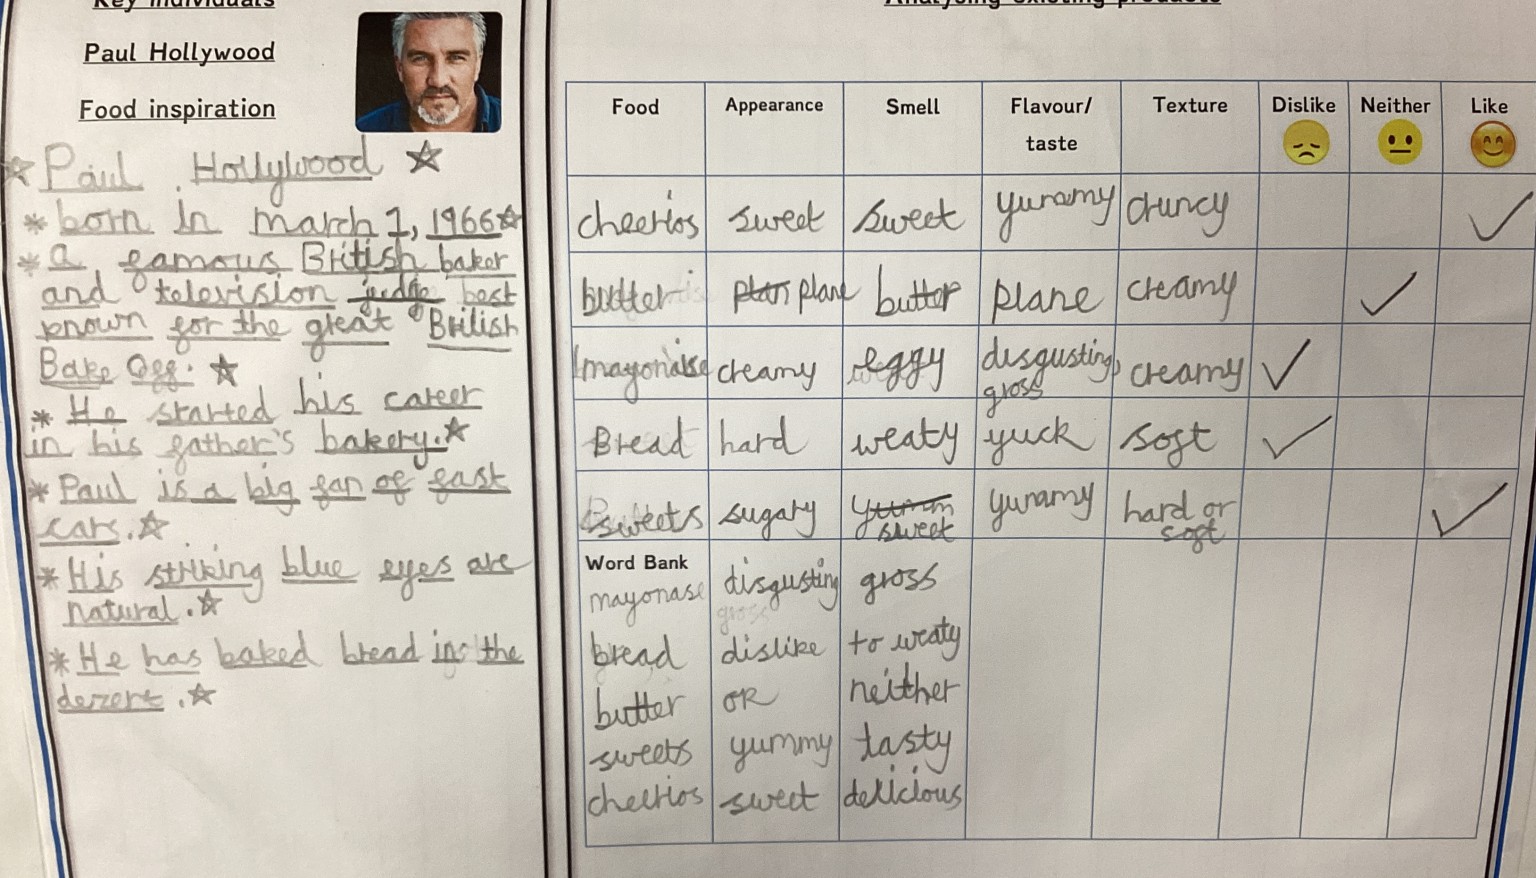 Key Individuals
Paul Hollywood
Food inspiration
Paul Hollywood
born in march 1, 1966
a famous British baker
and television judge best
known for the great British
Bake Off.
He started his career
in his father's bakery.
Paul is a big fan of fast
cars.
His striking blue eyes are
natural.
He has baked bread in the
dezert.
Analysing existing products
Food Appearance Smell Flavour/ taste Texture Dislike Neither Like
cheerios sweet sweet yummy cruncy
butter plane butter plane creamy
mayonaise creamy eggy disgusting, gross creamy
Bread hard weaty yuck soft
sweets sugary sweet yummy hard or soft
Word Bank
mayonase disgusting gross
bread dislike to weaty
butter OR neither
sweets yummy tasty
cheerios sweet delicious